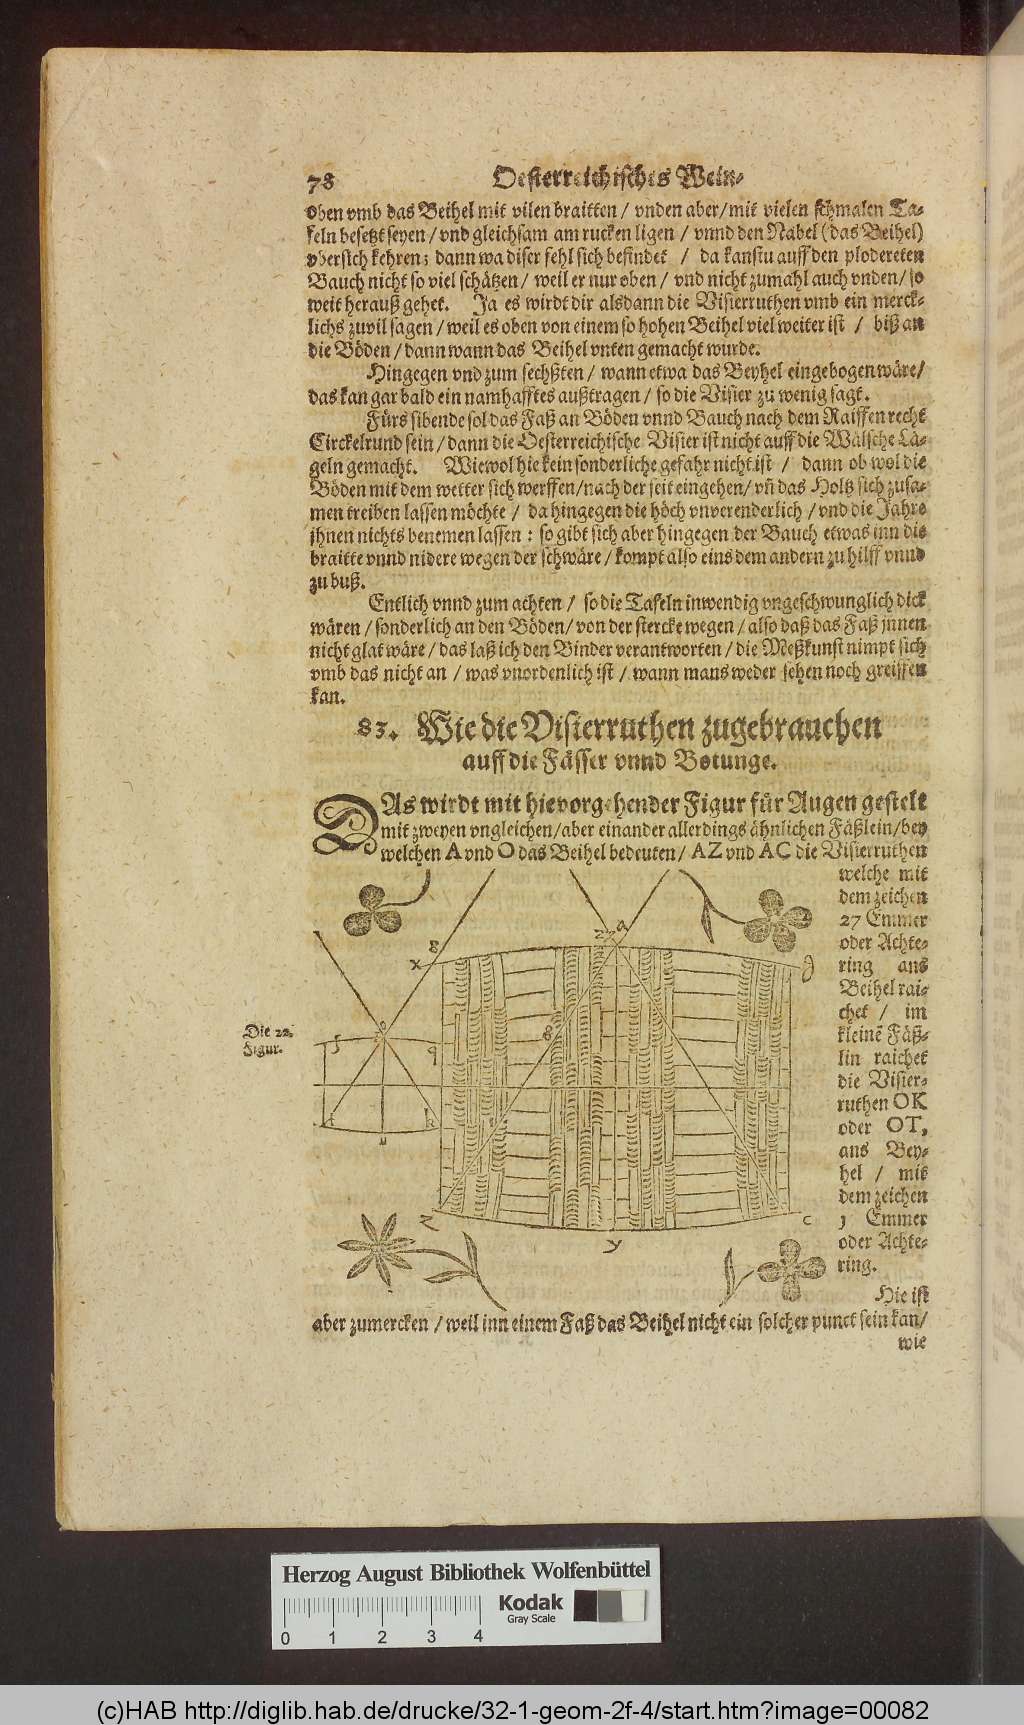 78 Oesterreichisches Wein-
oben vmb das Beihel mit vilen braitten / vnden aber / mit vielen schmalen Ta-
feln besetzt seyen / vnd gleichsam am rucken ligen / vnnd den Nabel (das Beihel)
vbersich kehren; dann wa diser fehl sich befindet / da kanstu auff den plodereten
Bauch nicht so viel schätzen / weil er nur oben / vnd nicht zumahl auch vnden / so
weit herauß gehet. Ja es wirdt dir alsdann die Visierruthen vmb ein merck-
lichs zuvil sagen / weil es oben von einem so hohen Beihel viel weiter ist / biß an
die Böden / dann wann das Beihel vnten gemacht wurde.
Hingegen vnd zum sechßten / wann etwa das Beyhel eingebogen wäre /
das kan gar bald ein namhafftes außtragen / so die Visier zu wenig sagt.
Fürs sibende sol das Faß an Böden vnnd Bauch nach dem Raiffen recht
Circkelrund sein / dann die Oesterreichische Visier ist nicht auff die Wälsche Lä-
geln gemacht. Wiewol hie kein sonderliche gefahr nicht ist / dann ob wol die
Böden mit dem wetter sich werffen / nach der seit eingehen / vñ das Holtz sich zusa-
men treiben lassen möchte / da hingegen die höch vnverenderlich / vnd die Jahre
jhnen nichts benemen lassen : so gibt sich aber hingegen der Bauch etwas inn die
braitte vnnd nidere wegen der schwäre / kompt also eins dem andern zu hilff vnnd
zu buß.
Entlich vnnd zum achten / so die Tafeln inwendig vngeschwunglich dick
wären / sonderlich an den Böden / von der stercke wegen / also daß das Faß jnnen
nicht glat wäre / das laß ich den Binder verantworten / die Meßkunst nimpt sich
vmb das nicht an / was vnordenlich ist / wann mans weder sehen noch greiffen
kan.
83. Wie die Visierruthen zugebrauchen
auff die Fässer vnnd Botunge.
DAs wirdt mit hievorgehender Figur für Augen gestelt
mit zweyen vngleichen / aber einander allerdings ähnlichen Fäßlein / bey
welchen A vnd O das Beihel bedeuten / AZ vnd AC die Visierruthen
welche mit
dem zeichen
27 Emmer
oder Achte-
ring ans
Beihel rai-
chet / im
kleinē Fäß-
lin raichet
die Visier-
ruthen OK
oder OT,
ans Bey-
hel / mit
dem zeichen
3 Emmer
oder Achte-
ring.
Die 22.
Figur.
x 8 27 a
8
z y c
q k
Hie ist
aber zumercken / weil inn einem Faß das Beihel nicht ein solcher punct sein kan /
wie
Herzog August Bibliothek Wolfenbüttel
0 1 2 3 4
Kodak
Gray Scale
(c)HAB http://diglib.hab.de/drucke/32-1-geom-2f-4/start.htm?image=00082